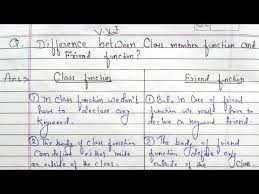 V.V.I
Q. Difference between Class member function and
Friend function?
Ans→ Class function
Friend function
① In class function we don't
have to declare any
keyword.
① But in Case of friend
function we must have to
declare a keyword friend.
② The body of class function
Can define either inside
or outside of the class.
② The body of friend
function define only
outside of the Class